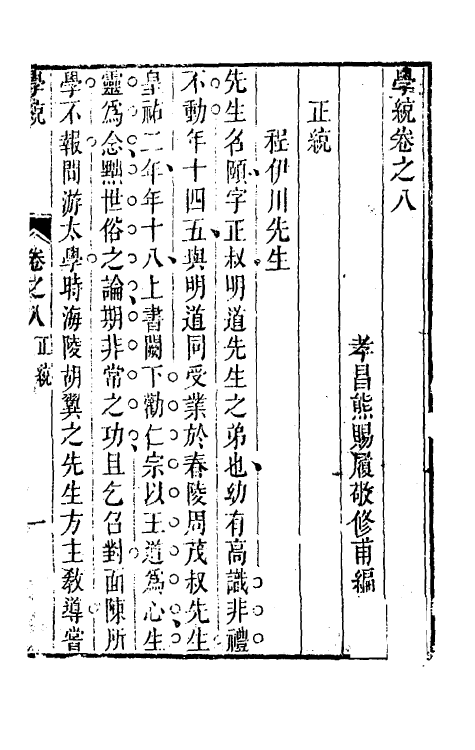 學統卷之八
孝昌熊賜履敬修甫編
正統
程伊川先生
先生名頤字正叔明道先生之弟也幼有高識非禮
不動年十四五與明道同受業於舂陵周茂叔先生
皇祐二年年十八上書闕下勸仁宗以王道爲心生
靈爲念黜世俗之論期非常之功且乞召對面陳所
學不報閒游太學時海陵胡翼之先生方主敎導嘗
學統
卷之八 正統
一